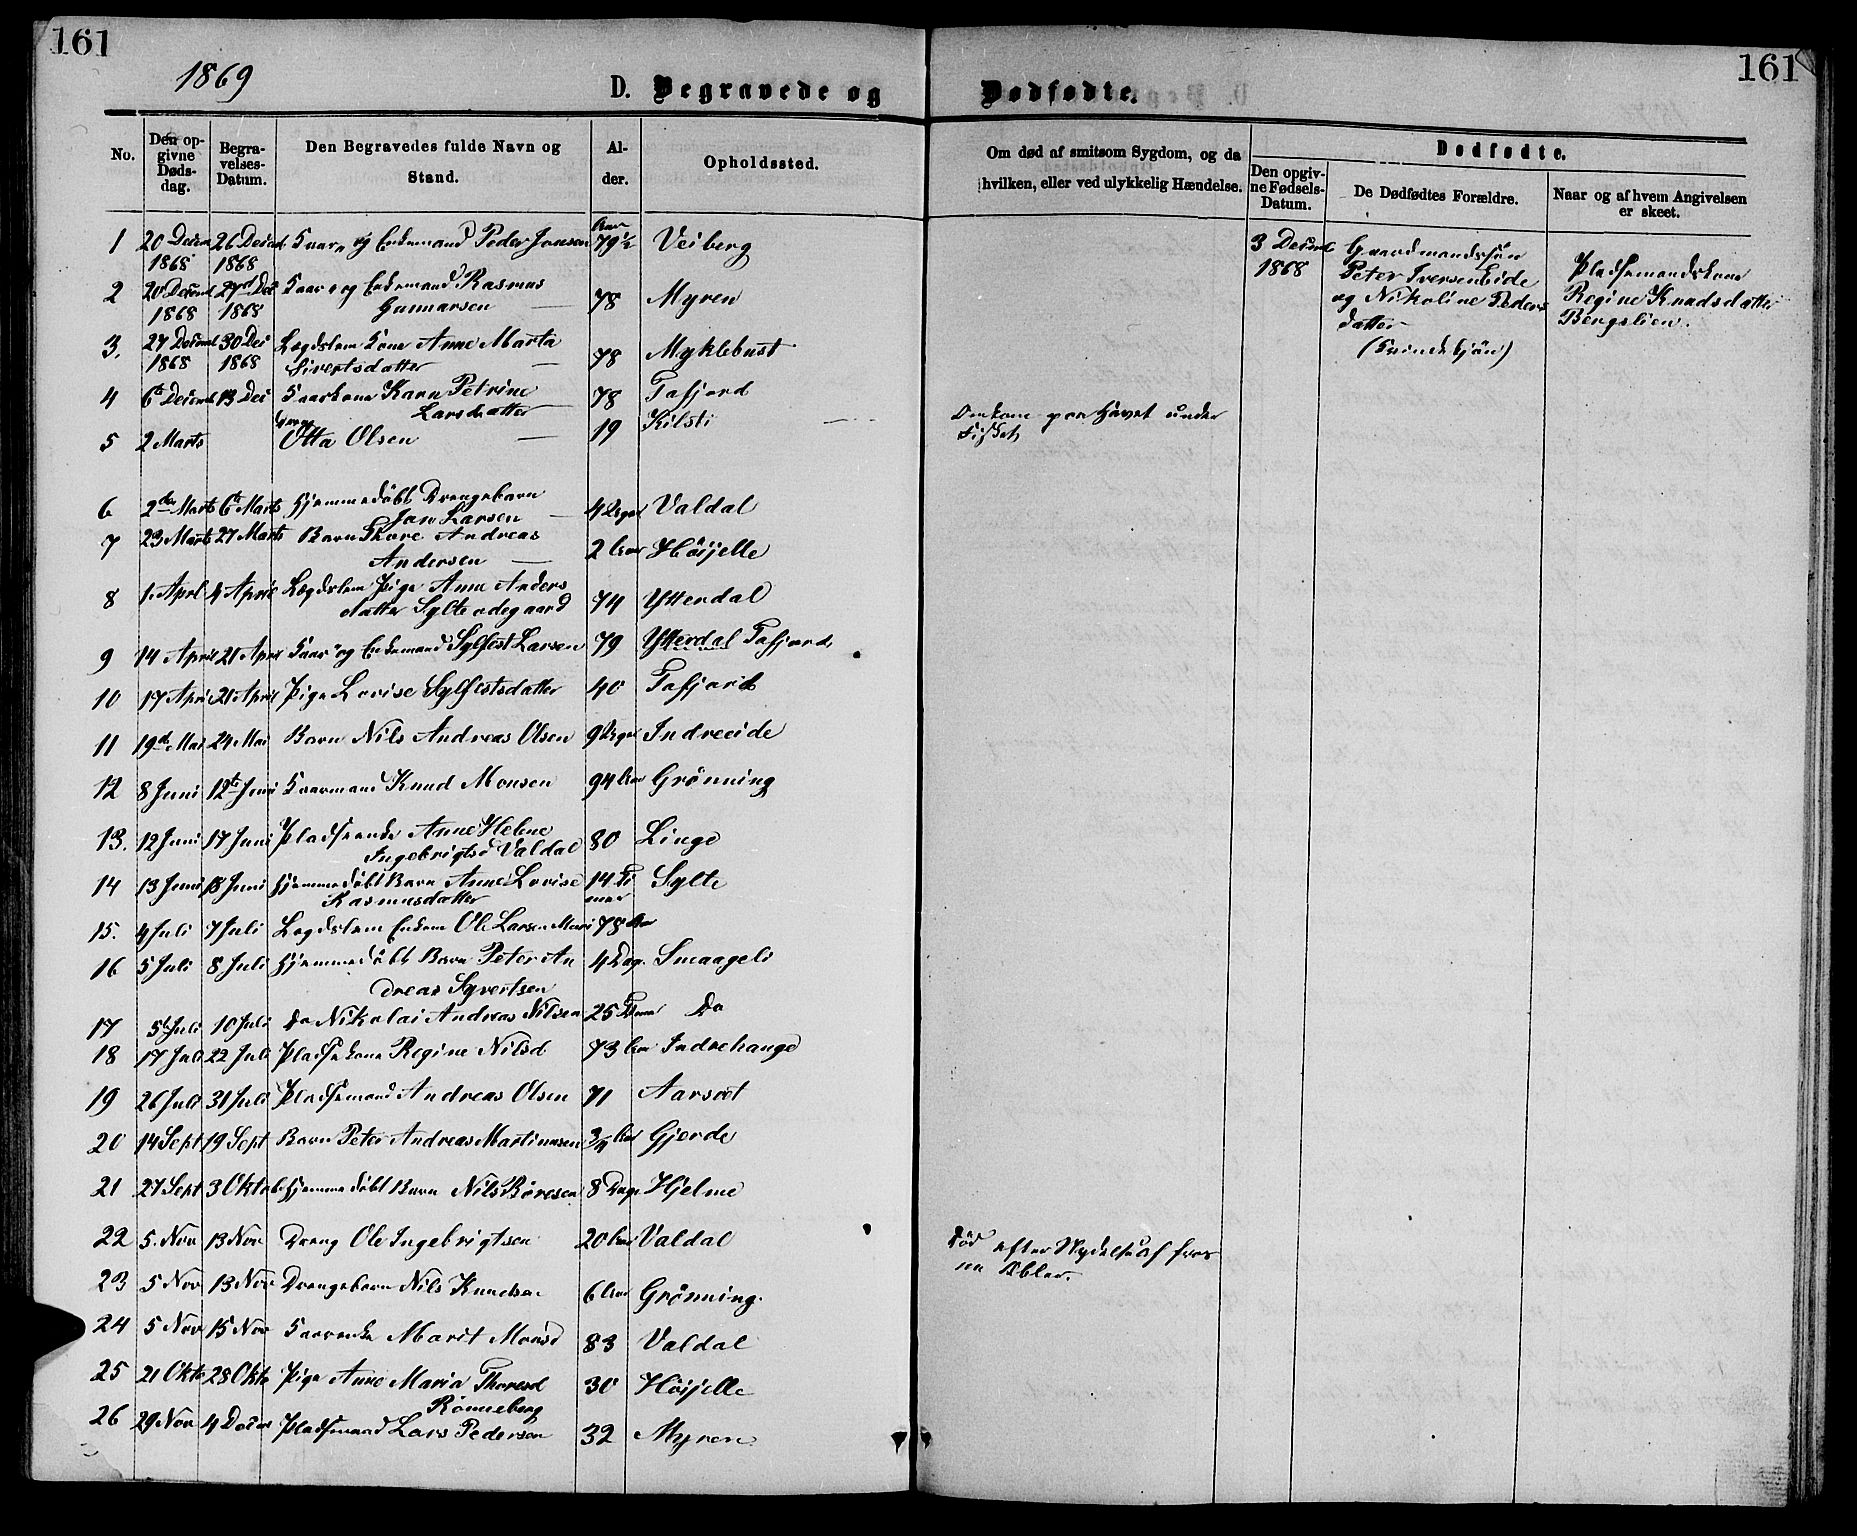 161
161
1869
D. Begravede og Dødfødte.
No.
Den opgivne Døds-dag.
Begravelses-Datum.
Den Begravedes fulde Navn og Stand.
Alder.
Opholdssted.
Om død af smitsom Sygdom, og da hvilken, eller ved ulykkelig Hændelse.
Dødfødte.
Den opgivne Fødsels-Datum.
De Dødfødtes Forældre.
Naar og af hvem Angivelsen er skeet.
1 20 Decem 1868 26 Decem 1868 og Enkemand Peder Jonsen 79½ Aar Veiberg
2 1868 1868 og Enkemand Rasmus Gunnarsen — 78 Myren
3. 27 Decemb 1868 30 Dec 1868 Lægdslem Kone Anne Marta Sivertsdatter — 78 Myklebust
4 6te Decemb 13 Dec Gaardkone Karn Petrine Larsdatter 78 Tafjord
5 2 Marts Otta Olsen — 19 Kilsti — Omkom paa Havet under Fisket
6 2den Marts 6te Marts Hjemmedøbt Drengebarn Jan Larsen — 4 Valdal
7 23 Marts 27 Marts Barn Thore Andreas Andersen — 2 Aar Høijelle
8 1. Apri 4 April Lægdslem Pige Anne Andersdatter Sylteødegaard 74 Ytterdal
9 14 April 21 April og Enkemand Sylfest Larsen 79 Ytterdal Tafjord
10 17 April 21 April Pige Lovise Sylfestsdatter 40 Tafjord
11 19de Mai 24 Mai Barn Nils Andreas Olsen 9 Indreeide
12 8 Juni 12te Juni Gaardmand Knud Monsen 94 Aar Grønning
13. 12 Juni 17 Juni Pladsenke Anne Helene Ingebrigtsd Valdal 80 Linge
14 13 Juni 18 Juni Hjemmedøbt Barn Anne Lovise Rasmusdatter 14 Timer Sylte
15. 4 Juli 7 Juli Lægdslem Enkem Ole Larsen Muri 78 Aar
16 5 Juli 8 Juli Hjemmedøbt Barn Peter Andreas Syvertsen 4 Dage Smaageli
17 5te Juli 10 Juli Do Nikolai Andreas Nilsen 25 Timer Do
18 17 Juli 22 Juli Pladsekone Regine Nilsd 73 Aar Indrehauge
19 26 Juli 31 Juli Pladsemand Andreas Olsen 71 Aarset
20 14 Sept 19 Sept Barn Peter Andreas Martinusen 3/4 Aar Gjerde
21 27 Sept 3 Oktob Hjemmedøbt Barn Nils Børesen 8 Dage Hjelme
22 5. Nov 13 Nov Dreng Ole Ingebrigtsen 20 Aar Valdal Død efter Nydelse af
23 5 Nov 13 Nov Drengebarn Nils Knudsen 6 Aar Grønning.
24 5 Nov 15 Nov Marit Monsd 83 Valdal
25 21 Okto 28 Okto Pige Anne Maria Thoresd Rønneberg 30 Høijelle
26 29 Nov 4 Decem Pladsemand Lars Pedersen 32 Myren
3 Decemb 1868
Gaardmandssøn
Peter Iversen Eide
og Nikoline Peders
datter
(Kvindekjøn)
Pladsemandskone
Regine Knudsdatter
Bergslien.